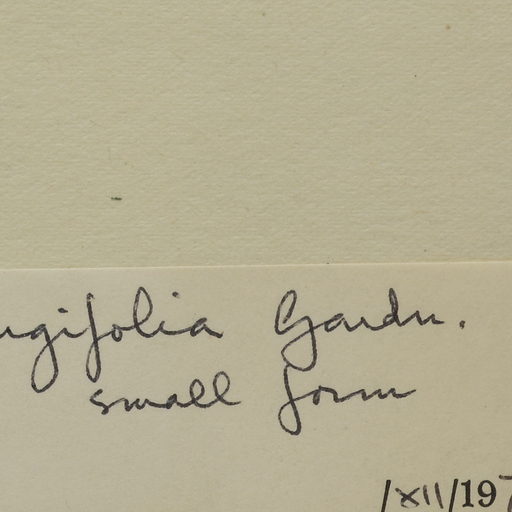 ugifolia Gardn.
small form
/XII/197